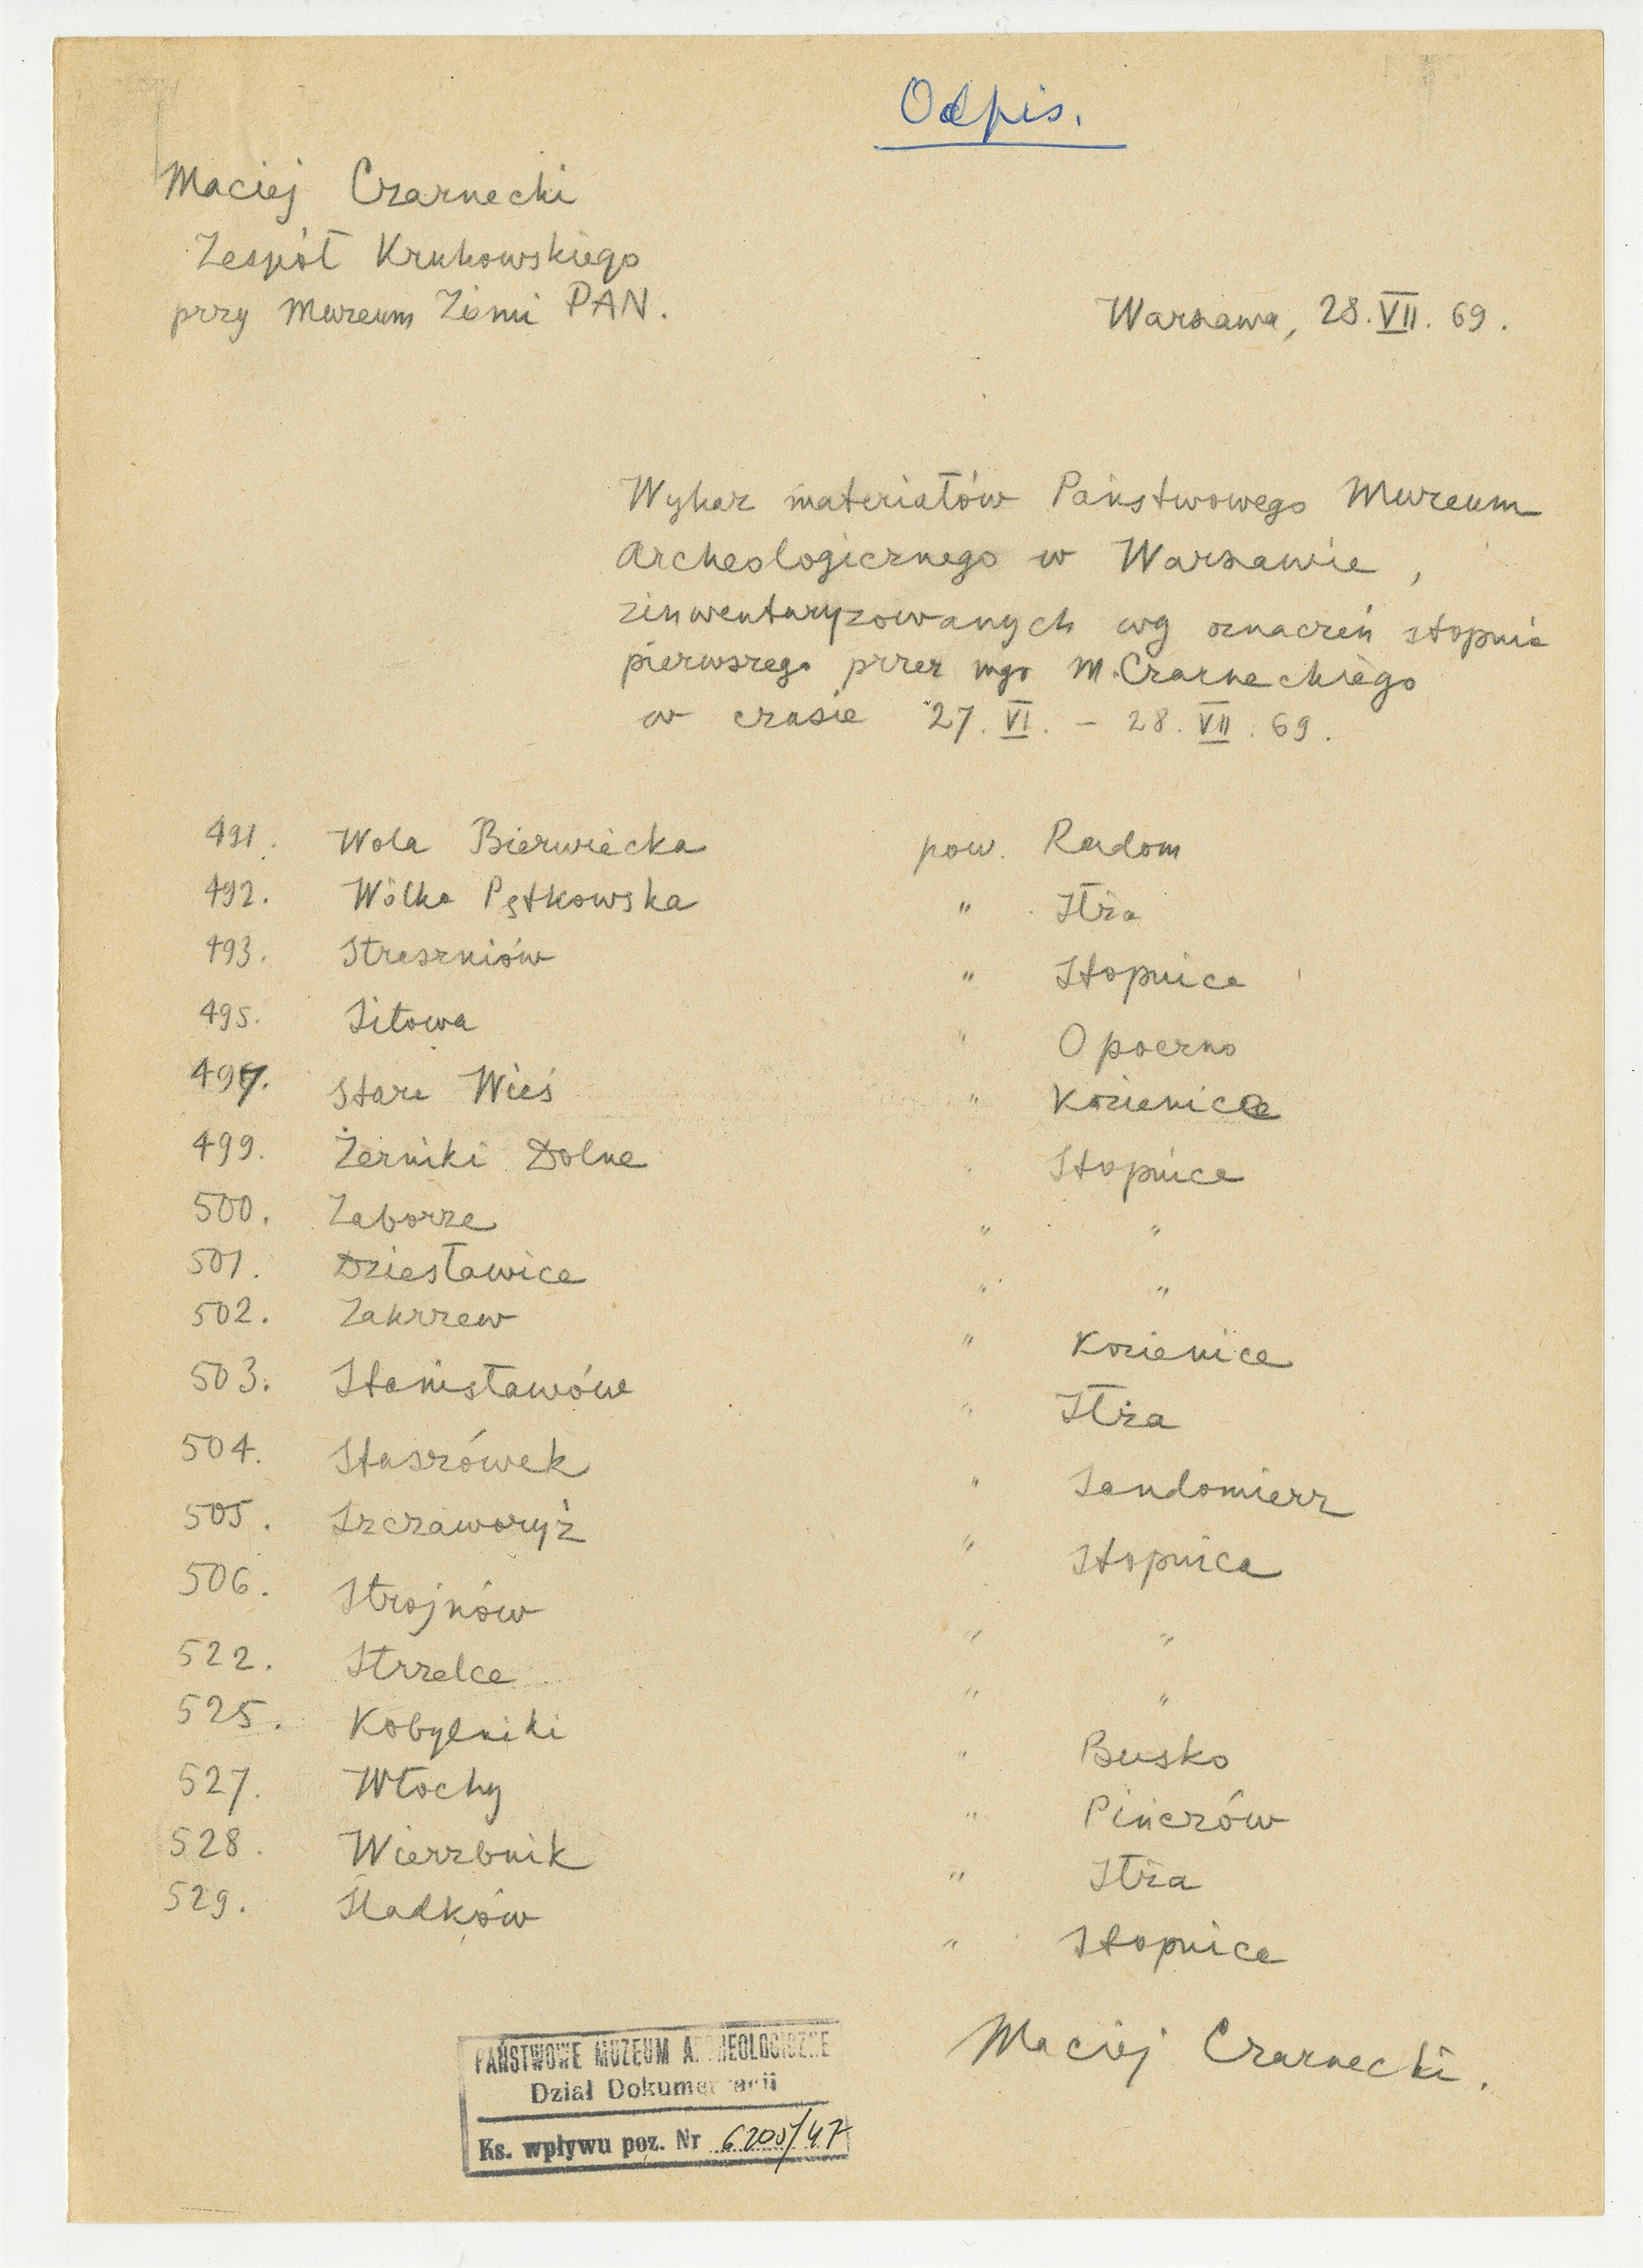 Odpis.
Maciej Czarnecki
Zespół Krukowskiego
przy Muzeum Ziemi PAN.
Warszawa, 28. VII. 69.
Wykaz materiałów Państwowego Muzeum
Archeologicznego w Warszawie,
zinwentaryzowanych wg oznaczeń stopnia
pierwszego przez mgr M. Czarneckiego
w czasie 27. VI. - 28. VII. 69.
491. Wola Bierwiecka pow. Radom
492. Wólka Pętkowska " Iłża
493. Streszniów " Stopnica
495. Sitowa " Opoczno
497. Stara Wieś " Kozienice
499. Żerniki Dolne " Stopnica
500. Zaborze " "
501. Dziesławice " "
502. Zakrzew " Kozienice
503. Stanisławów " Iłża
504. Staszówek " Sandomierz
505. Szczaworyż " Stopnica
506. Strojnów " "
522. Strzelce " "
525. Kobylniki " Busko
527. Włochy " Pińczów
528. Wierzbnik " Iłża
529. Śladków " Stopnica
Maciej Czarnecki.
PAŃSTWOWE MUZEUM ARCHEOLOGICZNE
Dział Dokumentacji
Ks. wpływu poz. Nr 6205/47